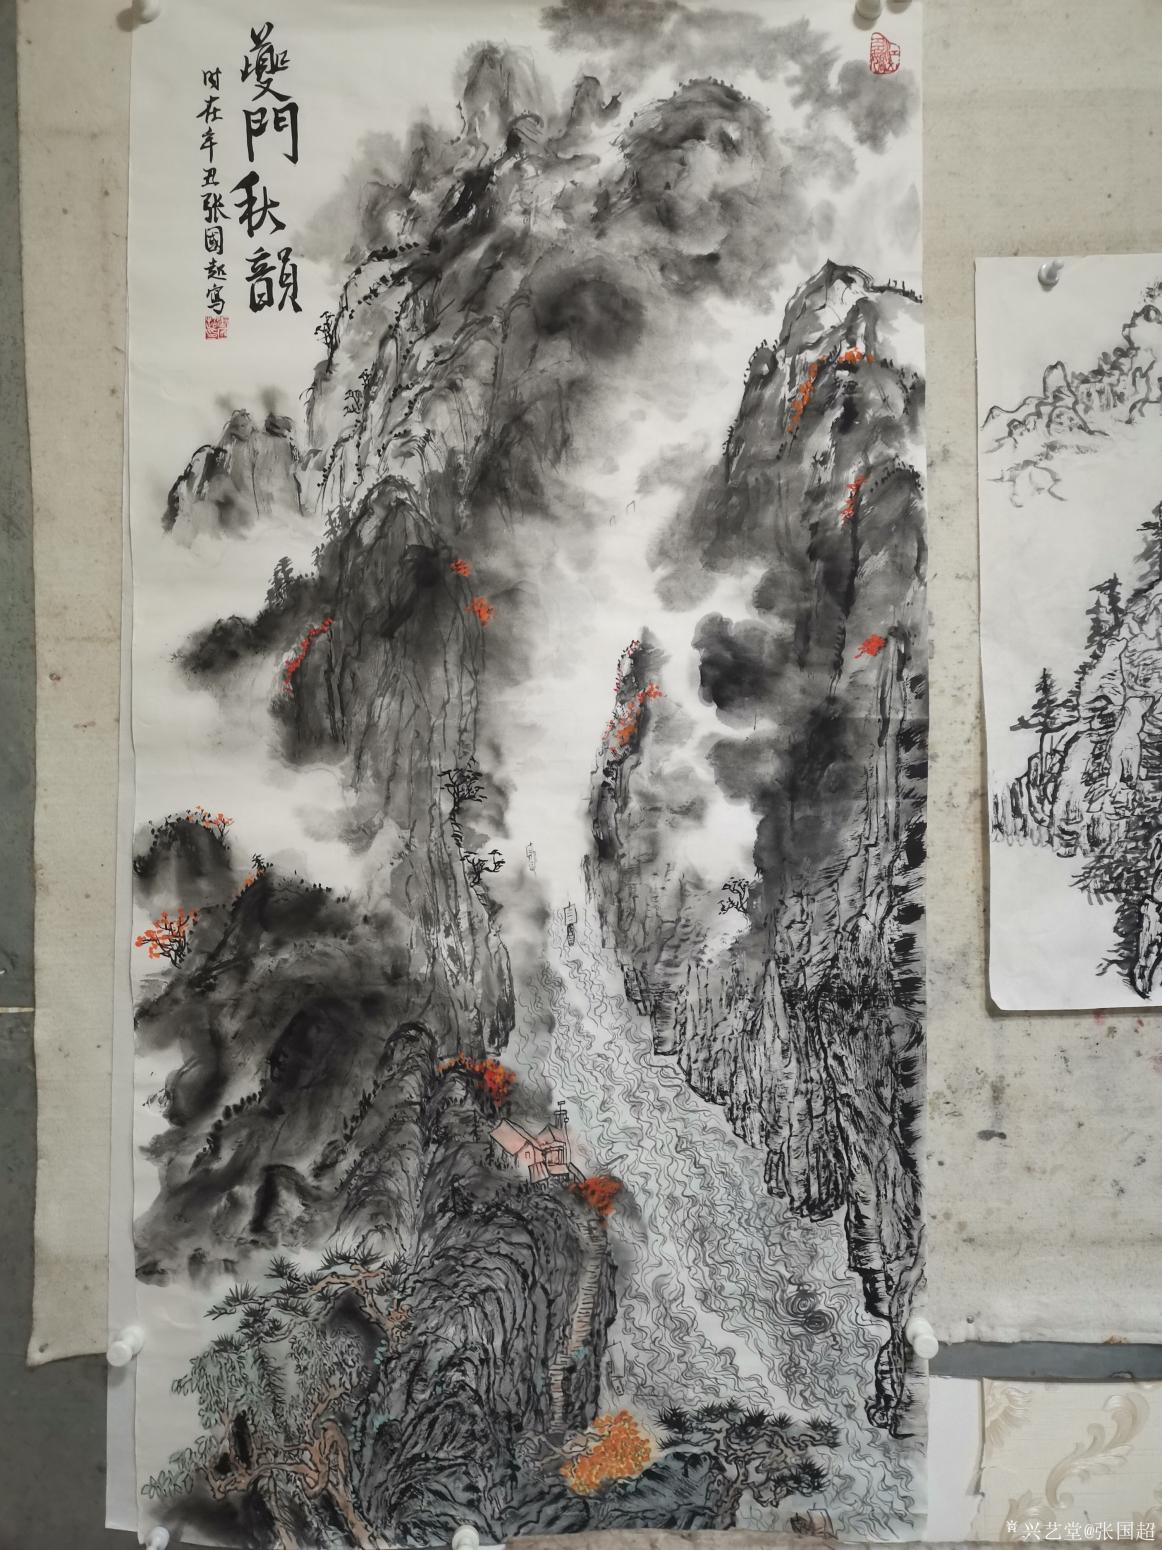 夔門秋韻
时在辛丑張國超寫
兴艺堂@张国超